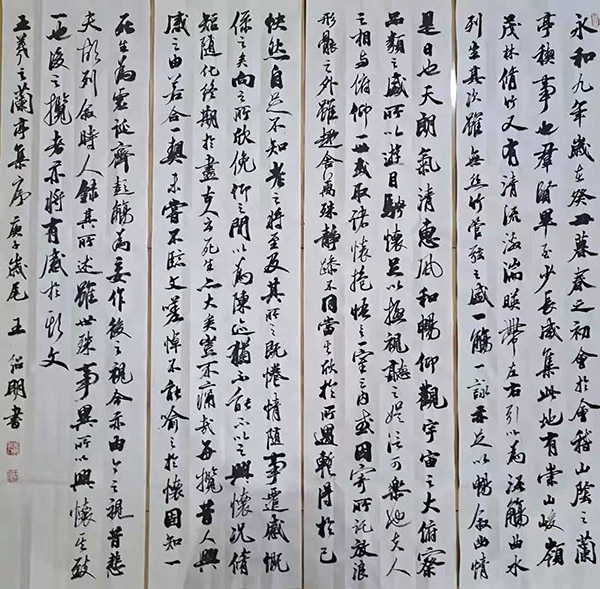 永和九年歲在癸丑暮春之初會於會稽山陰之蘭
亭稧事也群賢畢至少長咸集此地有崇山峻嶺
茂林脩竹又有清流激湍映帶左右引以為流觴曲水
列坐其次雖無絲竹管弦之盛一觴一詠亦足以暢敘幽情
是日也天朗氣清惠風和暢仰觀宇宙之大俯察
品類之盛所以遊目騁懷足以極視聽之娛信可樂也夫人
之相與俯仰一世或取諸懷抱悟言一室之內或因寄所託放浪
形骸之外雖趣舍萬殊靜躁不同當其欣於所遇暫得於己
怏然自足不知老之將至及其所之既惓情隨事遷感慨
係之矣向之所欣俛仰之間以為陳迹猶不能不以之興懷況脩
短隨化終期於盡古人云死生亦大矣豈不痛哉每攬昔人興
感之由若合一契未嘗不臨文嗟悼不能喻之於懷固知一
死生為虛誕齊彭殤為妄作後之視今亦由今之視昔悲
夫故列敘時人錄其所述雖世殊事異所以興懷其致
一也後之攬者亦將有感於斯文
王羲之蘭亭集序庚子歲尾王紹明書